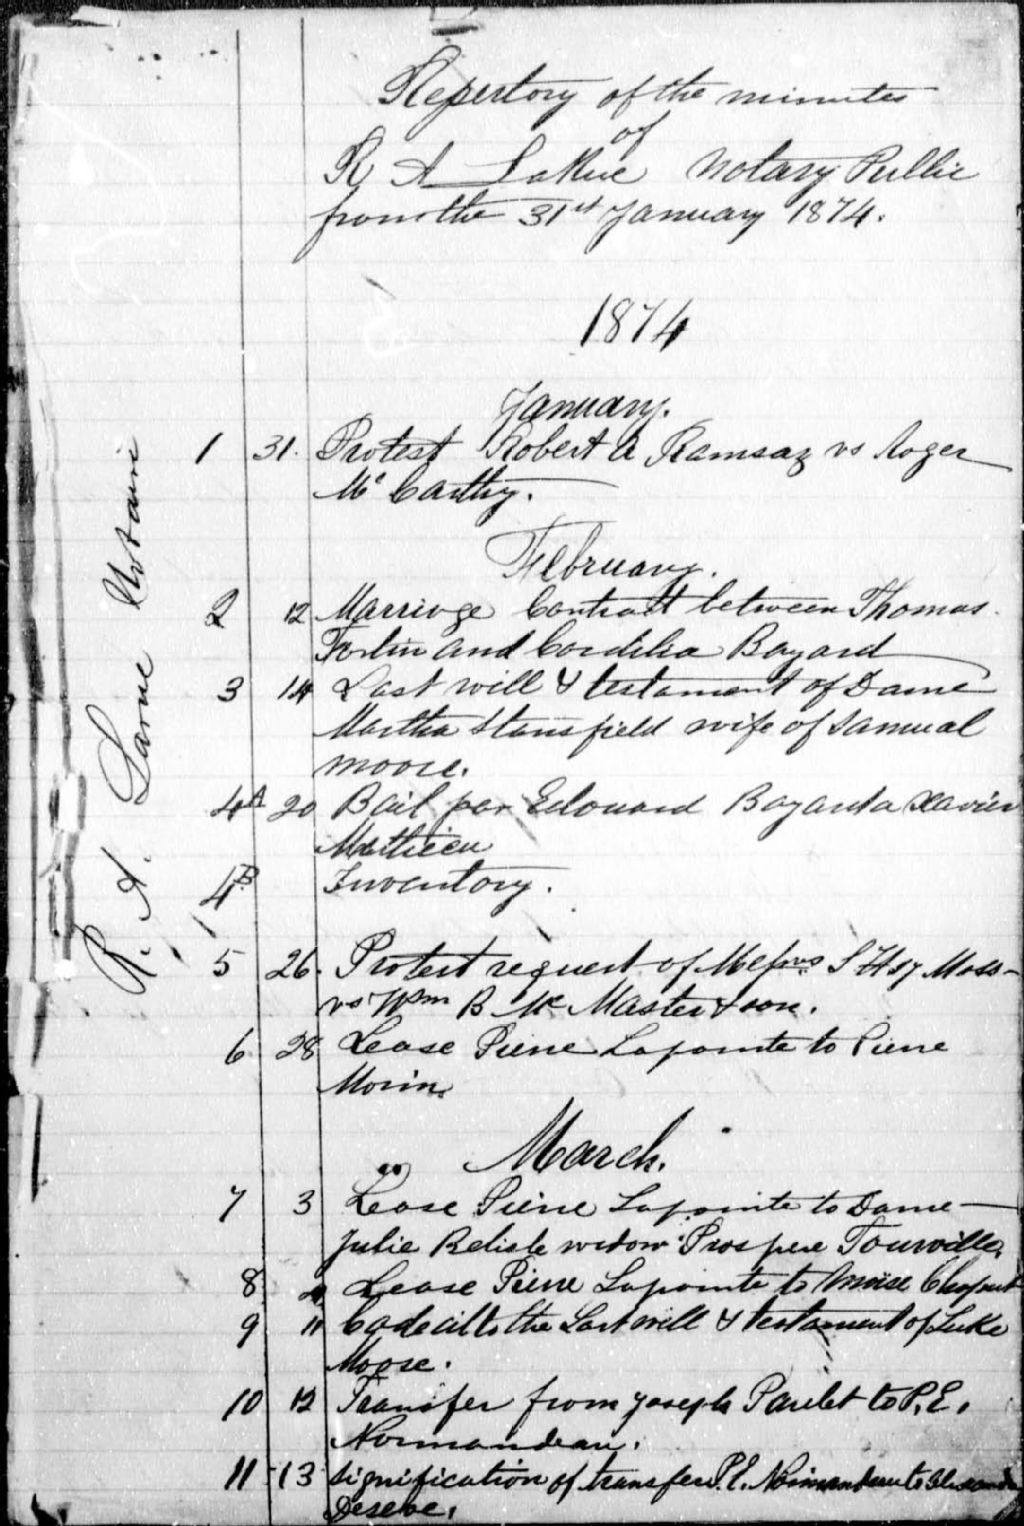 Repertory of the minutes
of
R A LaRue Notary Public
from the 31st January 1874.
1874
January.
1 31. Protest Robert A Ramsay vs Roger
Mc Carthy.
February.
2 12 Marriage Contract between Thomas
Fortin and Cordelia Bayard
3 14 Last will & testament of Dame
Martha Stansfield wife of Samual
Moore.
4A 20 Bail par Edouard Bayard a Xavier
Mathieu
4B Inventory.
5 26. Protest request of Messrs S H & J Moss
vs Wm B Mc Master & son.
6 28 Lease Pierre Lapointe to Pierre
Morin.
March.
7 3 Lease Pierre Lapointe to Dame
Julie Belisle widow Prospere Tourville.
8 Lease Pierre Lapointe to Moise
9 11 Codicil to the Last will & testament of Luke
Moore.
10 12 Transfer from Joseph to P. E.
Normandeau.
11 13 Signification of transfer P. E. Normandeau to
Deseve.
R. A. Larue Notaire